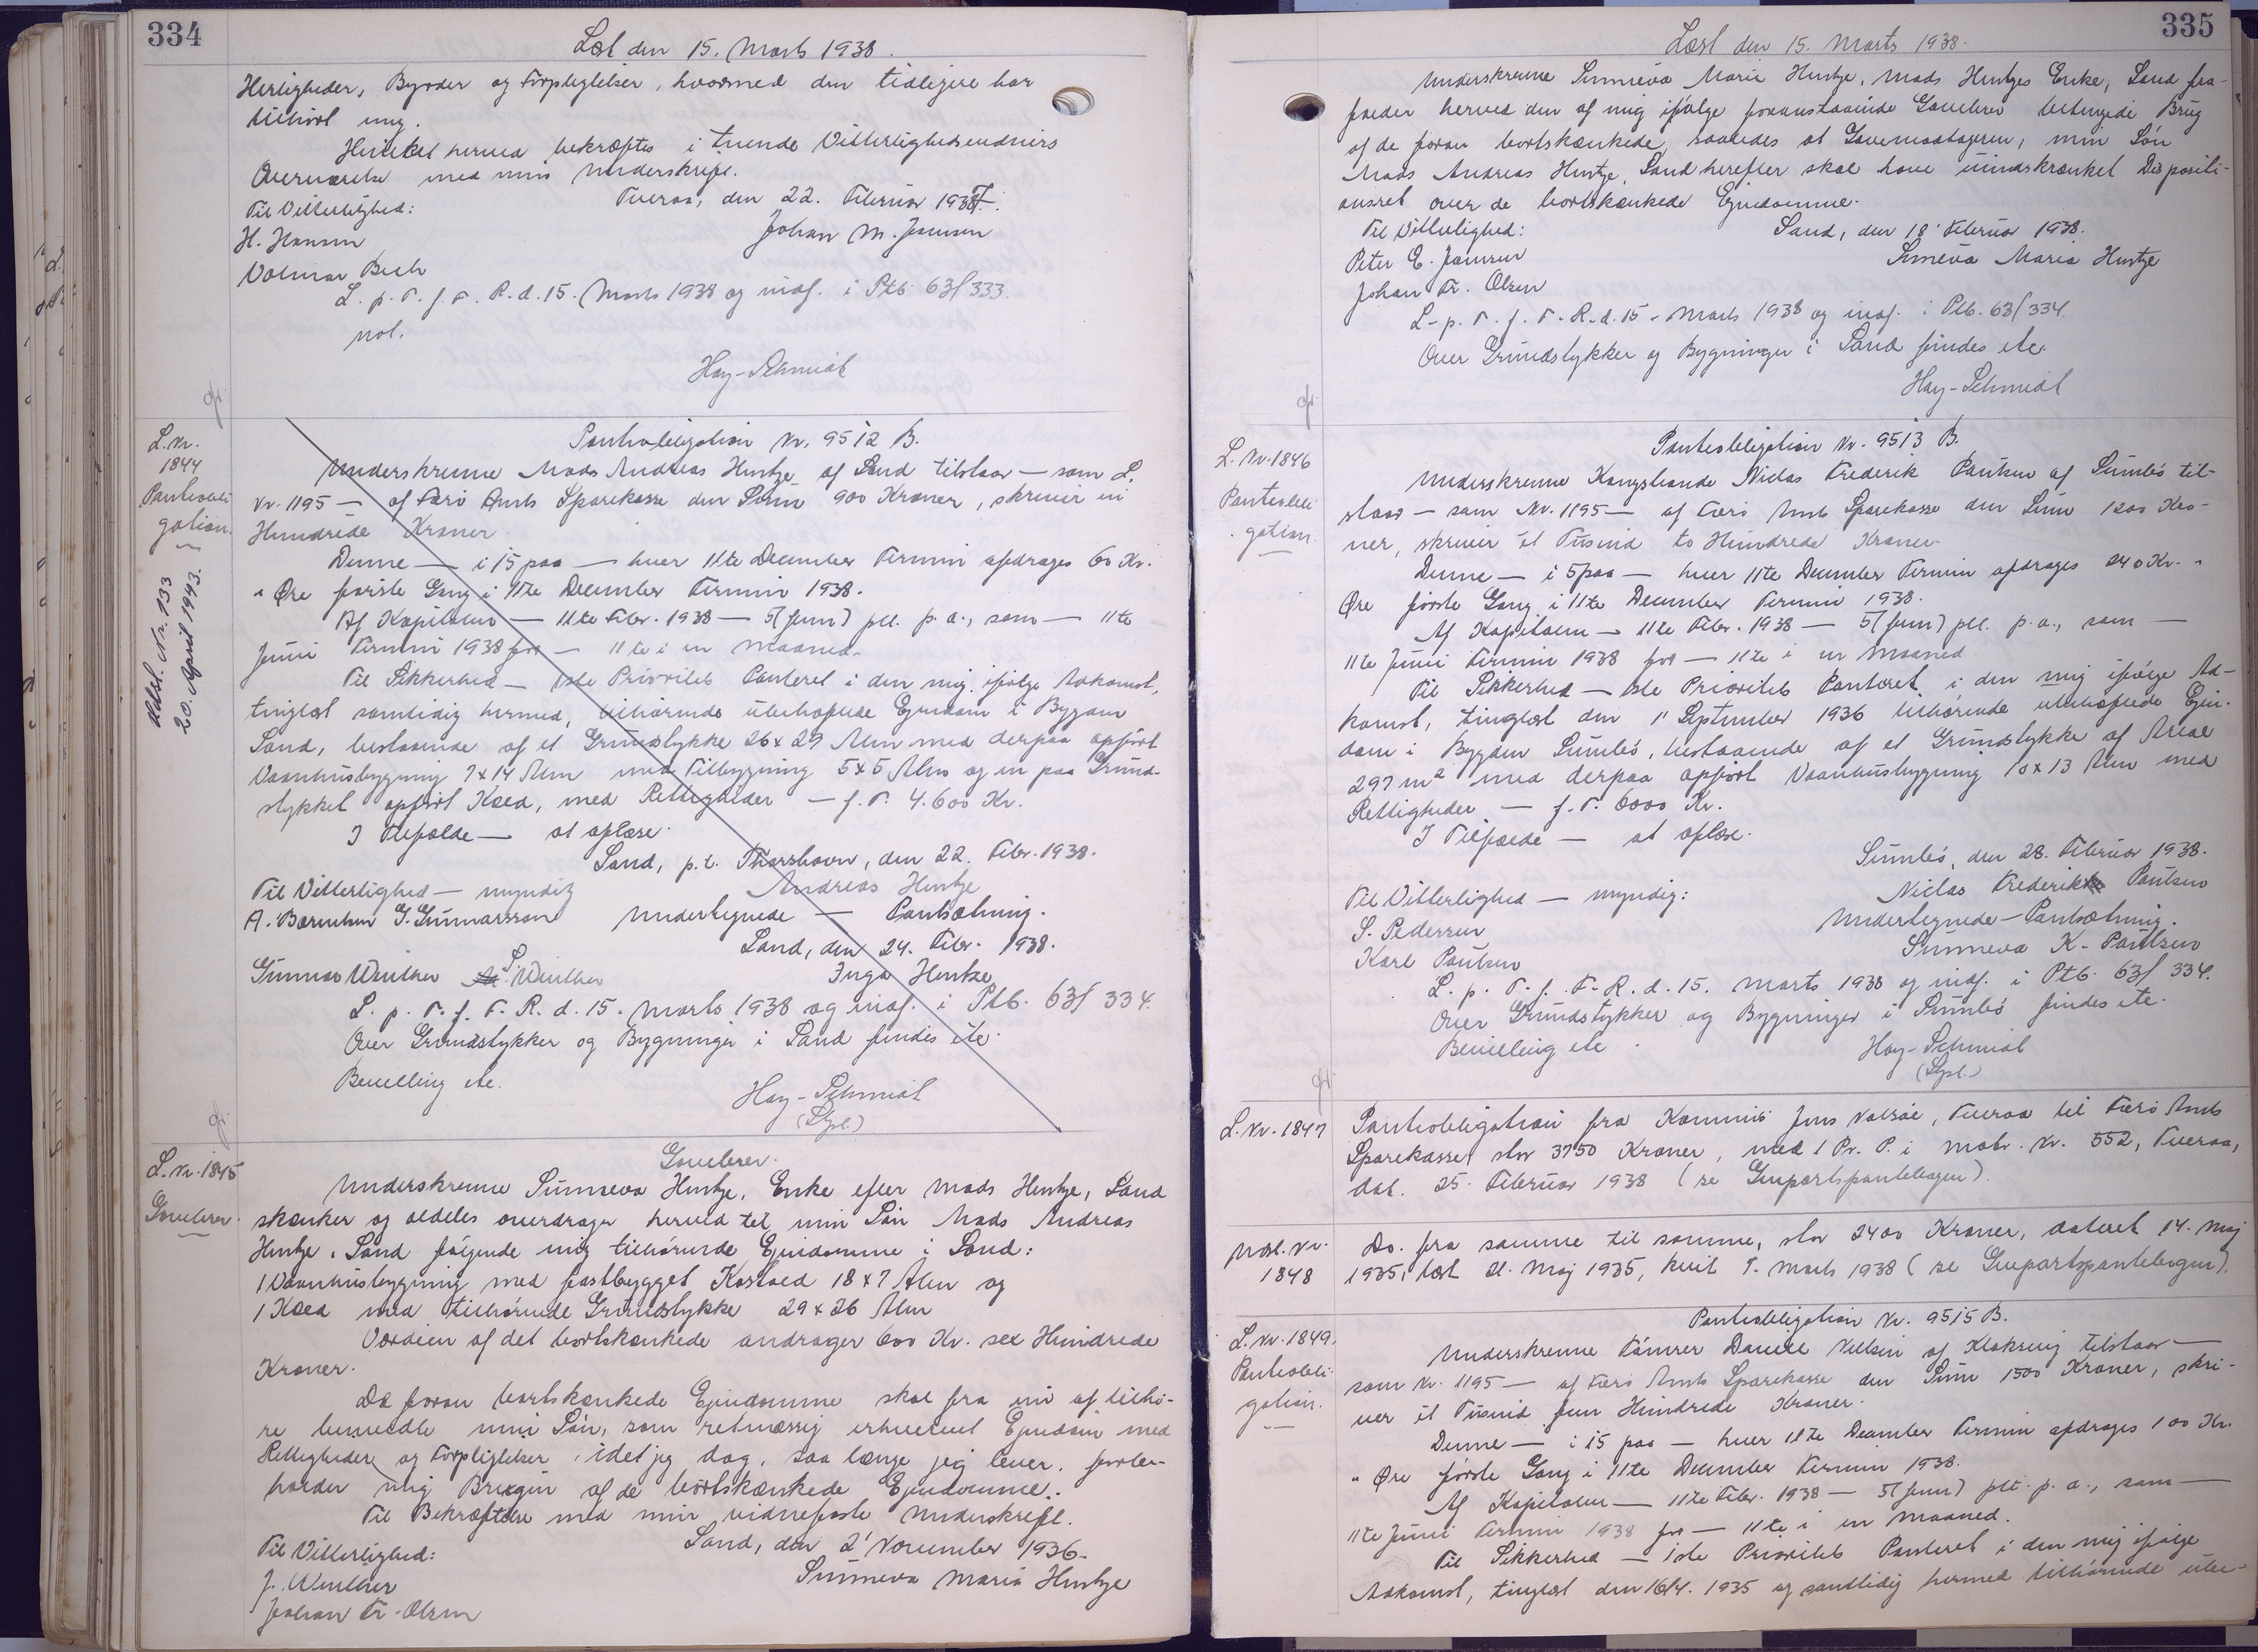 334
Læst den 15. Marts 1938.
Herligheder, Byrder og Forpligtelser, hvormed den tidligere har
tilhørt mig.
Hvilket herved bekræftes i tvende Vitterlighedsvidners
Overværelse med min Underskrift.
Tveraa, den 22. Februar 1938.
Til Vitterlighed:
Johan M. Joensen
H. Hansen
Volmar Bech
L. p. T. f. F. R. d. 15. Marts 1938 og indf. i Ptb. 63/333.
not.
Hay-Schmidt
L. Nr.
1844
Pantobli
gation.
Udsl. Nr. 133
20. April 1943.
Pantobligation Nr. 9512 B.
Underskrevne Mads Andreas Hentze af Sand tilstaar — som L.
Nr. 1195 — af Færø Amts Sparekasse den Sum 900 Kroner, skriver ni
Hundrede Kroner.
Denne — i 15 paa — hver 11te December Termin afdrages 60 Kr.
" Øre første Gang i 11te December Termin 1938.
Af Kapitalen — 11te Febr. 1938 — 5 (fem) pct. p. a., som — 11te
Juni Termin 1938 for — 11te i en Maaned.
Til Sikkerhed — 1ste Prioritets Panteret i den mig ifølge Adkomst,
tinglæst samtidig hermed, tilhørende ubehæftede Ejendom i Bygden
Sand, bestaaende af et Grundstykke 26 x 29 Alen med derpaa opført
Vaanhusbygning 7 x 14 Alen med Tilbygning 5 x 5 Alen og en paa Grund-
stykket opført Kæld, med Rettigheder — f. T. 4.600 Kr.
I Tilfælde — at oplære.
Sand, p.t. Thorshavn, den 22. Febr. 1938.
Til Vitterlighed — myndig
Andreas Hentze
A. Bærentsen G. Gunnarsson
Undertegnede — Pantsætning.
Sand, den 24. Febr. 1938.
Gunnar Winther S. Winther
Inga Hentze
L. p. T. f. F. R. d. 15. Marts 1938 og indf. i Ptb. 63/334.
Over Grundstykker og Bygninger i Sand findes ete.
Bevilling ete.
Hay-Schmidt
(Spl.)
L. Nr. 1845
Gavebrev.
Gavebrev.
Underskrevne Sunneva Hentze, Enke efter Mads Hentze, Sand
skænker og aldeles overdrager herved til min Søn Mads Andreas
Hentze, Sand følgende mig tilhørende Ejendomme i Sand:
1 Vaanhusbygning med fastbygget Kostald 18 x 7 Alen og
1 Kæld med tilhørende Grundstykke 29 x 26 Alen
Værdien af det bortskænkede andrager 600 Kr. sex Hundrede
Kroner.
De foran bortskænkede Ejendomme skal fra nu af tilhø-
re bemeldte min Søn, som retmæssig erhvervet Ejendom med
Rettigheder og Forpligtelser, idet jeg dog, saa længe jeg lever, forbe-
holder mig Brugen af de bortskænkede Ejendomme.
Til Bekræftelse med min vidnefaste Underskrift.
Sand, den 2' November 1936.
Til Vitterlighed:
Sunneva Maria Hentze
J. Winther
Johan Fr. Olsen
335
Læst den 15. Marts 1938.
Underskrevne Sunneva Maria Hentze, Mads Hentzes Enke, Sand fra-
falder herved den af mig ifølge foranstaaende Gavebrev betingede Brug
af de foran bortskænkede, saaledes at Gavemodtageren, min Søn
Mads Andreas Hentze, Sand herefter skal have uindskrænket Dispositi-
onsret over de bortskænkede Ejendomme.
Til Vitterlighed:
Sand, den 18' Februar 1938.
Peter E. Joensen
Sunneva Maria Hentze
Johan Fr. Olsen
L. p. T. f. F. R. d. 15. Marts 1938 og indf. i Ptb. 63/334.
Over Grundstykker og Bygninger i Sand findes ete.
Hay-Schmidt
L. Nr. 1846
Pantobli
gation.
Pantobligation Nr. 9513 B.
Underskrevne Kongsbonde Niclas Frederik Poulsen af Sumbø til-
staar — som Nr. 1195 — af Færø Amts Sparekasse den Sum 1200 Kro-
ner, skriver et Tusind to Hundrede Kroner.
Denne — i 5 paa — hver 11te December Termin afdrages 240 Kr. "
Øre første Gang i 11te December Termin 1938.
Af Kapitalen — 11te Febr. 1938 — 5 (fem) pct. p. a., som —
11te Juni Termin 1938 for — 11te i en Maaned.
Til Sikkerhed — 1ste Prioritets Panteret i den mig ifølge Ad-
komst, tinglæst den 11 September 1936 tilhørende ubehæftede Ejen-
dom i Bygden Sumbø, bestaaende af et Grundstykke af Areal
297 m² med derpaa opført Vaanhusbygning 10 x 13 Alen med
Rettigheder — f. T. 6000 Kr.
I Tilfælde — at oplære.
Sumbø, den 28. Februar 1938.
Til Vitterlighed — myndig:
Niclas Frederik Poulsen
S. Pedersen
Undertegnede — Pantsætning.
Karl Poulsen
Sunneva K. Poulsen
L. p. T. f. F. R. d. 15. Marts 1938 og indf. i Ptb. 63/334.
Over Grundstykker og Bygninger i Sumbø findes ete.
Bevilling ete.
Hay-Schmidt
(Spl.)
L. Nr. 1847
Pantobligation fra Kommis Jens Valsøe, Tveraa til Færø Amts
Sparekasse stor 3750 Kroner, med 1 Pr. P. i Matr. Nr. 552, Tveraa,
dat. 25. Februar 1938 (se Genpartspantebogen).
Udsl. Nr.
1848
Do. fra samme til samme, stor 2400 Kroner, dateret 14. Maj
1935, læst 21. Maj 1935, kvit 7. Marts 1938 (se Genpartspantebogen).
L. Nr. 1849.
Pantobli
gation.
Pantobligation Nr. 9515 B.
Underskrevne Tømrer Daniel Nielsen af Klaksvig tilstaar —
som Nr. 1195 — af Færø Amts Sparekasse den Sum 1500 Kroner, skri-
ver et Tusind fem Hundrede Kroner.
Denne — i 15 paa — hver 11te December Termin afdrages 100 Kr.
" Øre første Gang i 11te December Termin 1938.
Af Kapitalen — 11te Febr. 1938 — 5 (fem) pct. p. a., som —
11te Juni Termin 1938 for — 11te i en Maaned.
Til Sikkerhed — 1ste Prioritets Panteret i den mig ifølge
Adkomst, tinglæst den 16/4. 1935 og samtidig hermed tilhørende ube-